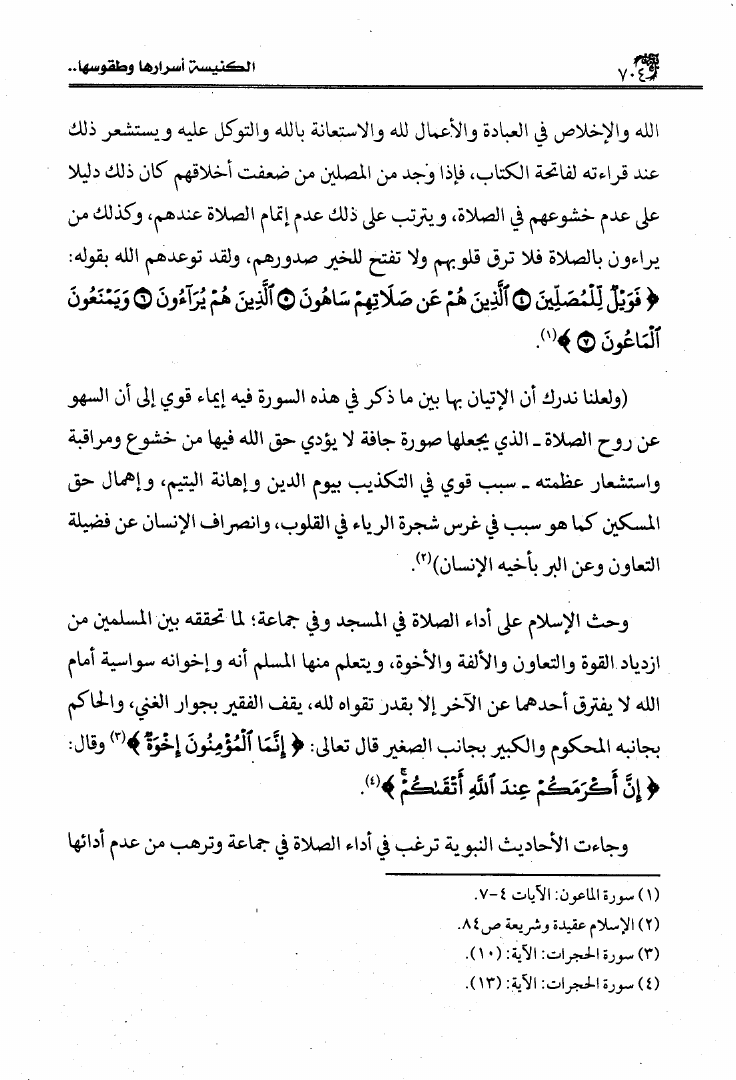 الكنيسة أسرارها وطقوسها..
٧٠٤
الله والإخلاص في العبادة والأعمال لله والاستعانة بالله والتوكل عليه ويستشعر ذلك
عند قراءته لفاتحة الكتاب، فإذا وجد من المصلين من ضعفت أخلاقهم كان ذلك دليلا
على عدم خشوعهم في الصلاة، ويترتب على ذلك عدم إتمام الصلاة عندهم، وكذلك من
يراءون بالصلاة فلا ترق قلوبهم ولا تفتح للخير صدورهم، ولقد توعدهم الله بقوله:
﴿ فَوَيْلٌ لِّلْمُصَلِّينَ ۝٤ ٱلَّذِينَ هُمْ عَن صَلَاتِهِمْ سَاهُونَ ۝٥ ٱلَّذِينَ هُمْ يُرَآءُونَ ۝٦ وَيَمْنَعُونَ
ٱلْمَاعُونَ ۝٧ ﴾(١).
(ولعلنا ندرك أن الإتيان بها بين ما ذكر في هذه السورة فيه إيماء قوي إلى أن السهو
عن روح الصلاة ـ الذي يجعلها صورة جافة لا يؤدي حق الله فيها من خشوع ومراقبة
واستشعار عظمته ـ سبب قوي في التكذيب بيوم الدين وإهانة اليتيم، وإهمال حق
المسكين كما هو سبب في غرس شجرة الرياء في القلوب، وانصراف الإنسان عن فضيلة
التعاون وعن البر بأخيه الإنسان)(٢).
وحث الإسلام على أداء الصلاة في المسجد وفي جماعة؛ لما تحققه بين المسلمين من
ازدياد القوة والتعاون والألفة والأخوة، ويتعلم منها المسلم أنه وإخوانه سواسية أمام
الله لا يفترق أحدهما عن الآخر إلا بقدر تقواه لله، يقف الفقير بجوار الغني، والحاكم
بجانبه المحكوم والكبير بجانب الصغير قال تعالى: ﴿ إِنَّمَا ٱلْمُؤْمِنُونَ إِخْوَةٌ ﴾(٣) وقال:
﴿ إِنَّ أَكْرَمَكُمْ عِندَ ٱللَّهِ أَتْقَىٰكُمْ ۚ ﴾(٤).
وجاءت الأحاديث النبوية ترغب في أداء الصلاة في جماعة وترهب من عدم أدائها
(١) سورة الماعون: الآيات ٤-٧.
(٢) الإسلام عقيدة وشريعة ص٨٤.
(٣) سورة الحجرات: الآية: (١٠).
(٤) سورة الحجرات: الآية: (١٣).